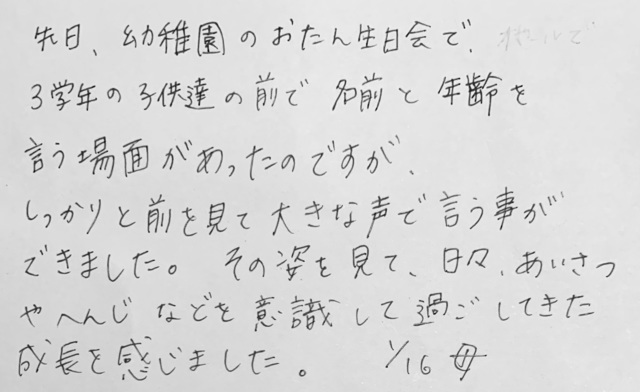 先日、幼稚園のおたん生日会で、
3学年の子供達の前で名前と年齢を
言う場面があったのですが、
しっかりと前を見て大きな声で言う事が
できました。その姿を見て、日々、あいさつ
やへんじなどを意識して過ごしてきた
成長を感じました。 1/16 母